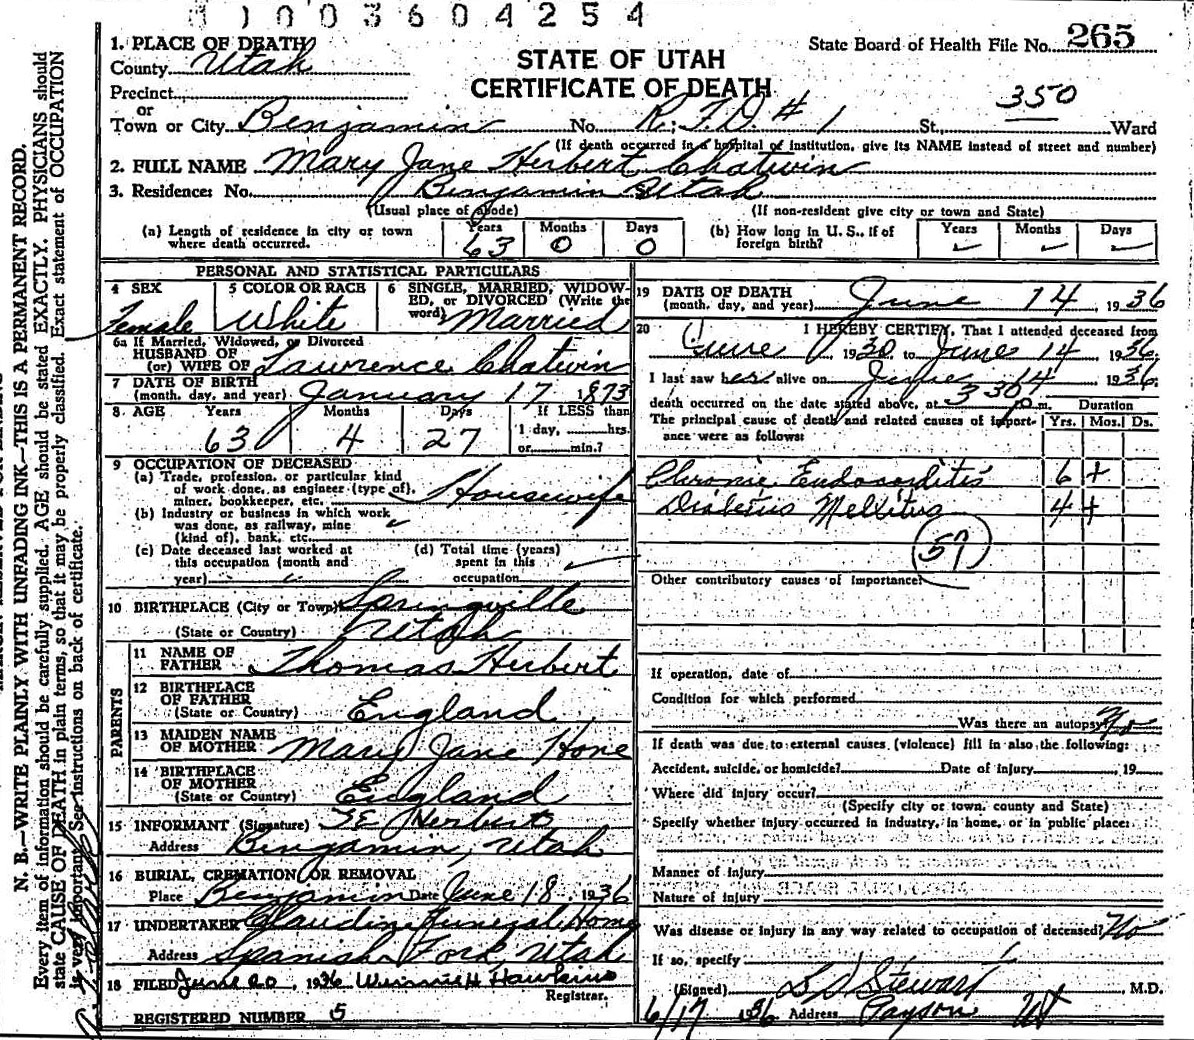 1003604254
1. PLACE OF DEATH
County Utah
Precinct
or
Town or City Benjamin No. R.F.D. # 1 St., Ward
STATE OF UTAH
CERTIFICATE OF DEATH
State Board of Health File No. 265
350
(If death occurred in a hospital or institution, give its NAME instead of street and number)
2. FULL NAME Mary Jane Herbert Chatwin
3. Residence: No. Benjamin St. Utah
(Usual place of abode) (If non-resident give city or town and State)
(a) Length of residence in city or town where death occurred. Years 63 Months 0 Days 0
(b) How long in U. S., if of foreign birth? Years Months Days
PERSONAL AND STATISTICAL PARTICULARS
4 SEX Female
5 COLOR OR RACE White
6 SINGLE, MARRIED, WIDOW-
ED, or DIVORCED (Write the
word) Married
6a If Married, Widowed, or Divorced
HUSBAND OF
(or) WIFE OF Lawrence Chatwin
7 DATE OF BIRTH
(month, day, and year) January 17 1873
8 AGE Years 63 Months 4 Days 27
If LESS than
1 day, hrs.
or min.?
9 OCCUPATION OF DECEASED
(a) Trade, profession, or particular kind
of work done, as engineer (type of),
miner, bookkeeper, etc. Housewife
(b) Industry or business in which work
was done, as railway, mine
(kind of), bank, etc.
(c) Date deceased last worked at
this occupation (month and
year)
(d) Total time (years)
spent in this
occupation
10 BIRTHPLACE (City or Town) Springville
(State or Country) Utah
PARENTS
11 NAME OF
FATHER Thomas Herbert
12 BIRTHPLACE
OF FATHER
(State or Country) England
13 MAIDEN NAME
OF MOTHER Mary Jane Hone
14 BIRTHPLACE
OF MOTHER
(State or Country) England
15 INFORMANT (Signature) T E Herbert
Address Benjamin, Utah
16 BURIAL, CREMATION OR REMOVAL
Place Benjamin Date June 18, 1936
17 UNDERTAKER Claudin Funeral Home
Address Spanish Fork, Utah
18 FILED June 20, 1936 Winnie H Hawkins
Registrar.
REGISTERED NUMBER 5
19 DATE OF DEATH
(month, day, and year) June 14, 1936
20 I HEREBY CERTIFY, That I attended deceased from
June 1930, to June 14 1936.
I last saw her alive on June 14 1936.
death occurred on the date stated above, at 330 p.m. Duration
The principal cause of death and related causes of import-
ance were as follows: Yrs. Mos. Ds.
Chronic Endocarditis 6 +
Diabetus Mellitus 4 +
59
Other contributory causes of importance:
If operation, date of
Condition for which performed
Was there an autopsy? No
If death was due to external causes (violence) fill in also the following:
Accident, suicide, or homicide? Date of injury , 19
Where did injury occur?
(Specify city or town, county and State)
Specify whether injury occurred in industry, in home, or in public place:
Manner of injury
Nature of injury
Was disease or injury in any way related to occupation of deceased? No
If so, specify
(Signed) L D Stewart, M.D.
6/17 1936 Address Payson Ut
N. B.—WRITE PLAINLY WITH UNFADING INK—THIS IS A PERMANENT RECORD.
Every item of information should be carefully supplied. AGE should be stated EXACTLY. PHYSICIANS should
state CAUSE OF DEATH in plain terms, so that it may be properly classified. Exact statement of OCCUPATION
is very important. See instructions on back of certificate.